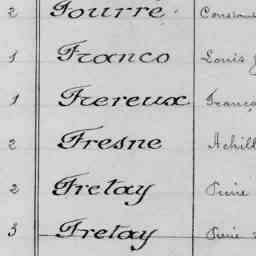 2 Fourré Constant
1 Franco Louis J
1 Frereux Franço
2 Fresne Achill
2 Fretay Pierre
3 Fretay Pierre